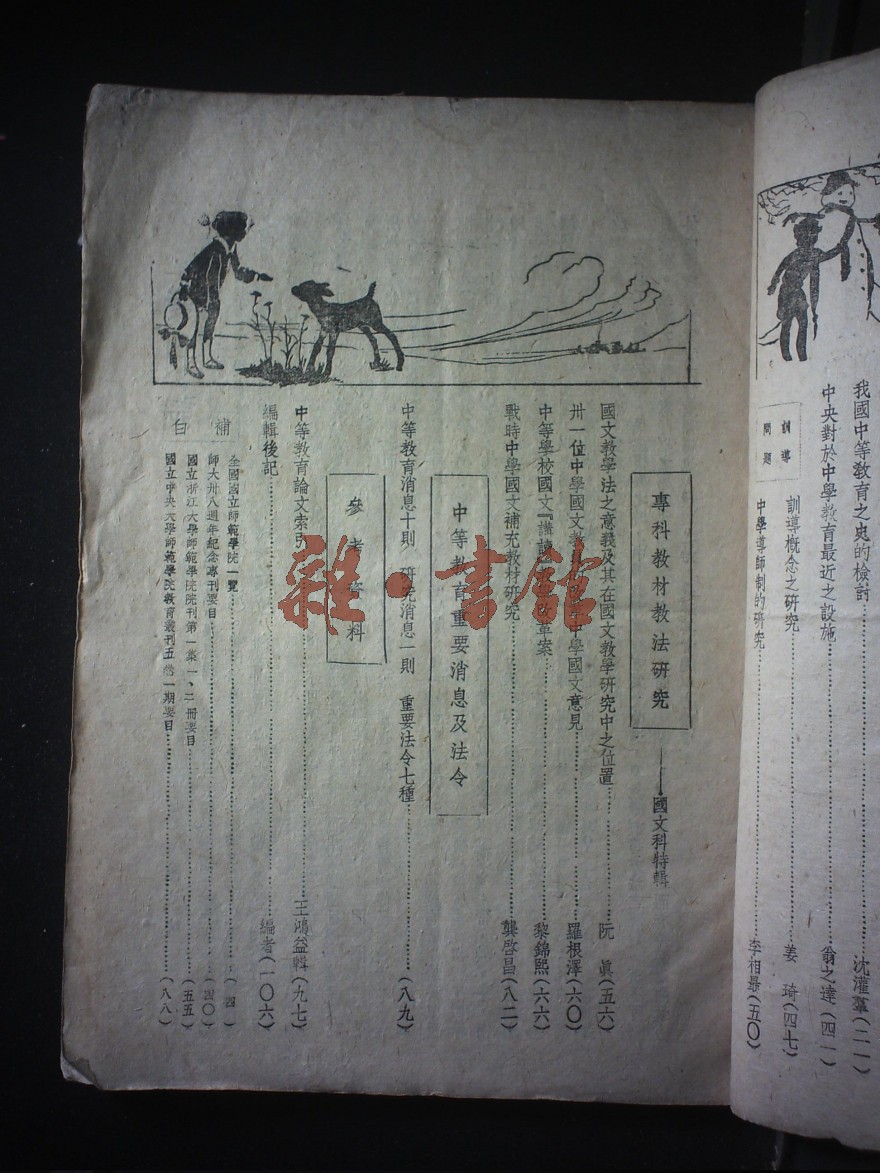 我國中等教育之史的檢討……沈灌羣(二一)
中央對於中學教育最近之設施……翁之達(四一)
訓導問題
訓導概念之研究……姜 琦(四七)
中學導師制的研究……李相勗(五〇)
專科教材教法研究——國文科特輯
國文教學法之意義及其在國文教學研究中之位置……阮 眞(五六)
卅一位中學國文教 中學國文意見……羅根澤(六〇)
中等學校國文『講讀 改革案……黎錦熙(六六)
戰時中學國文補充教材研究……龔啓昌(八二)
中等教育重要消息及法令
中等教育消息十則 研究消息一則 重要法令七種……(八九)
參考資料
中等教育論文索引……王鴻益輯(九七)
編輯後記……編者(一〇六)
補白
全國國立師範學院一覽……( 四 )
師大卅八週年紀念專刊要目……(四〇)
國立浙江大學師範學院院刊第一集一、二冊要目……(五五)
國立中央大學師範學院教育叢刊五卷一期要目……(八八)
雜·書館